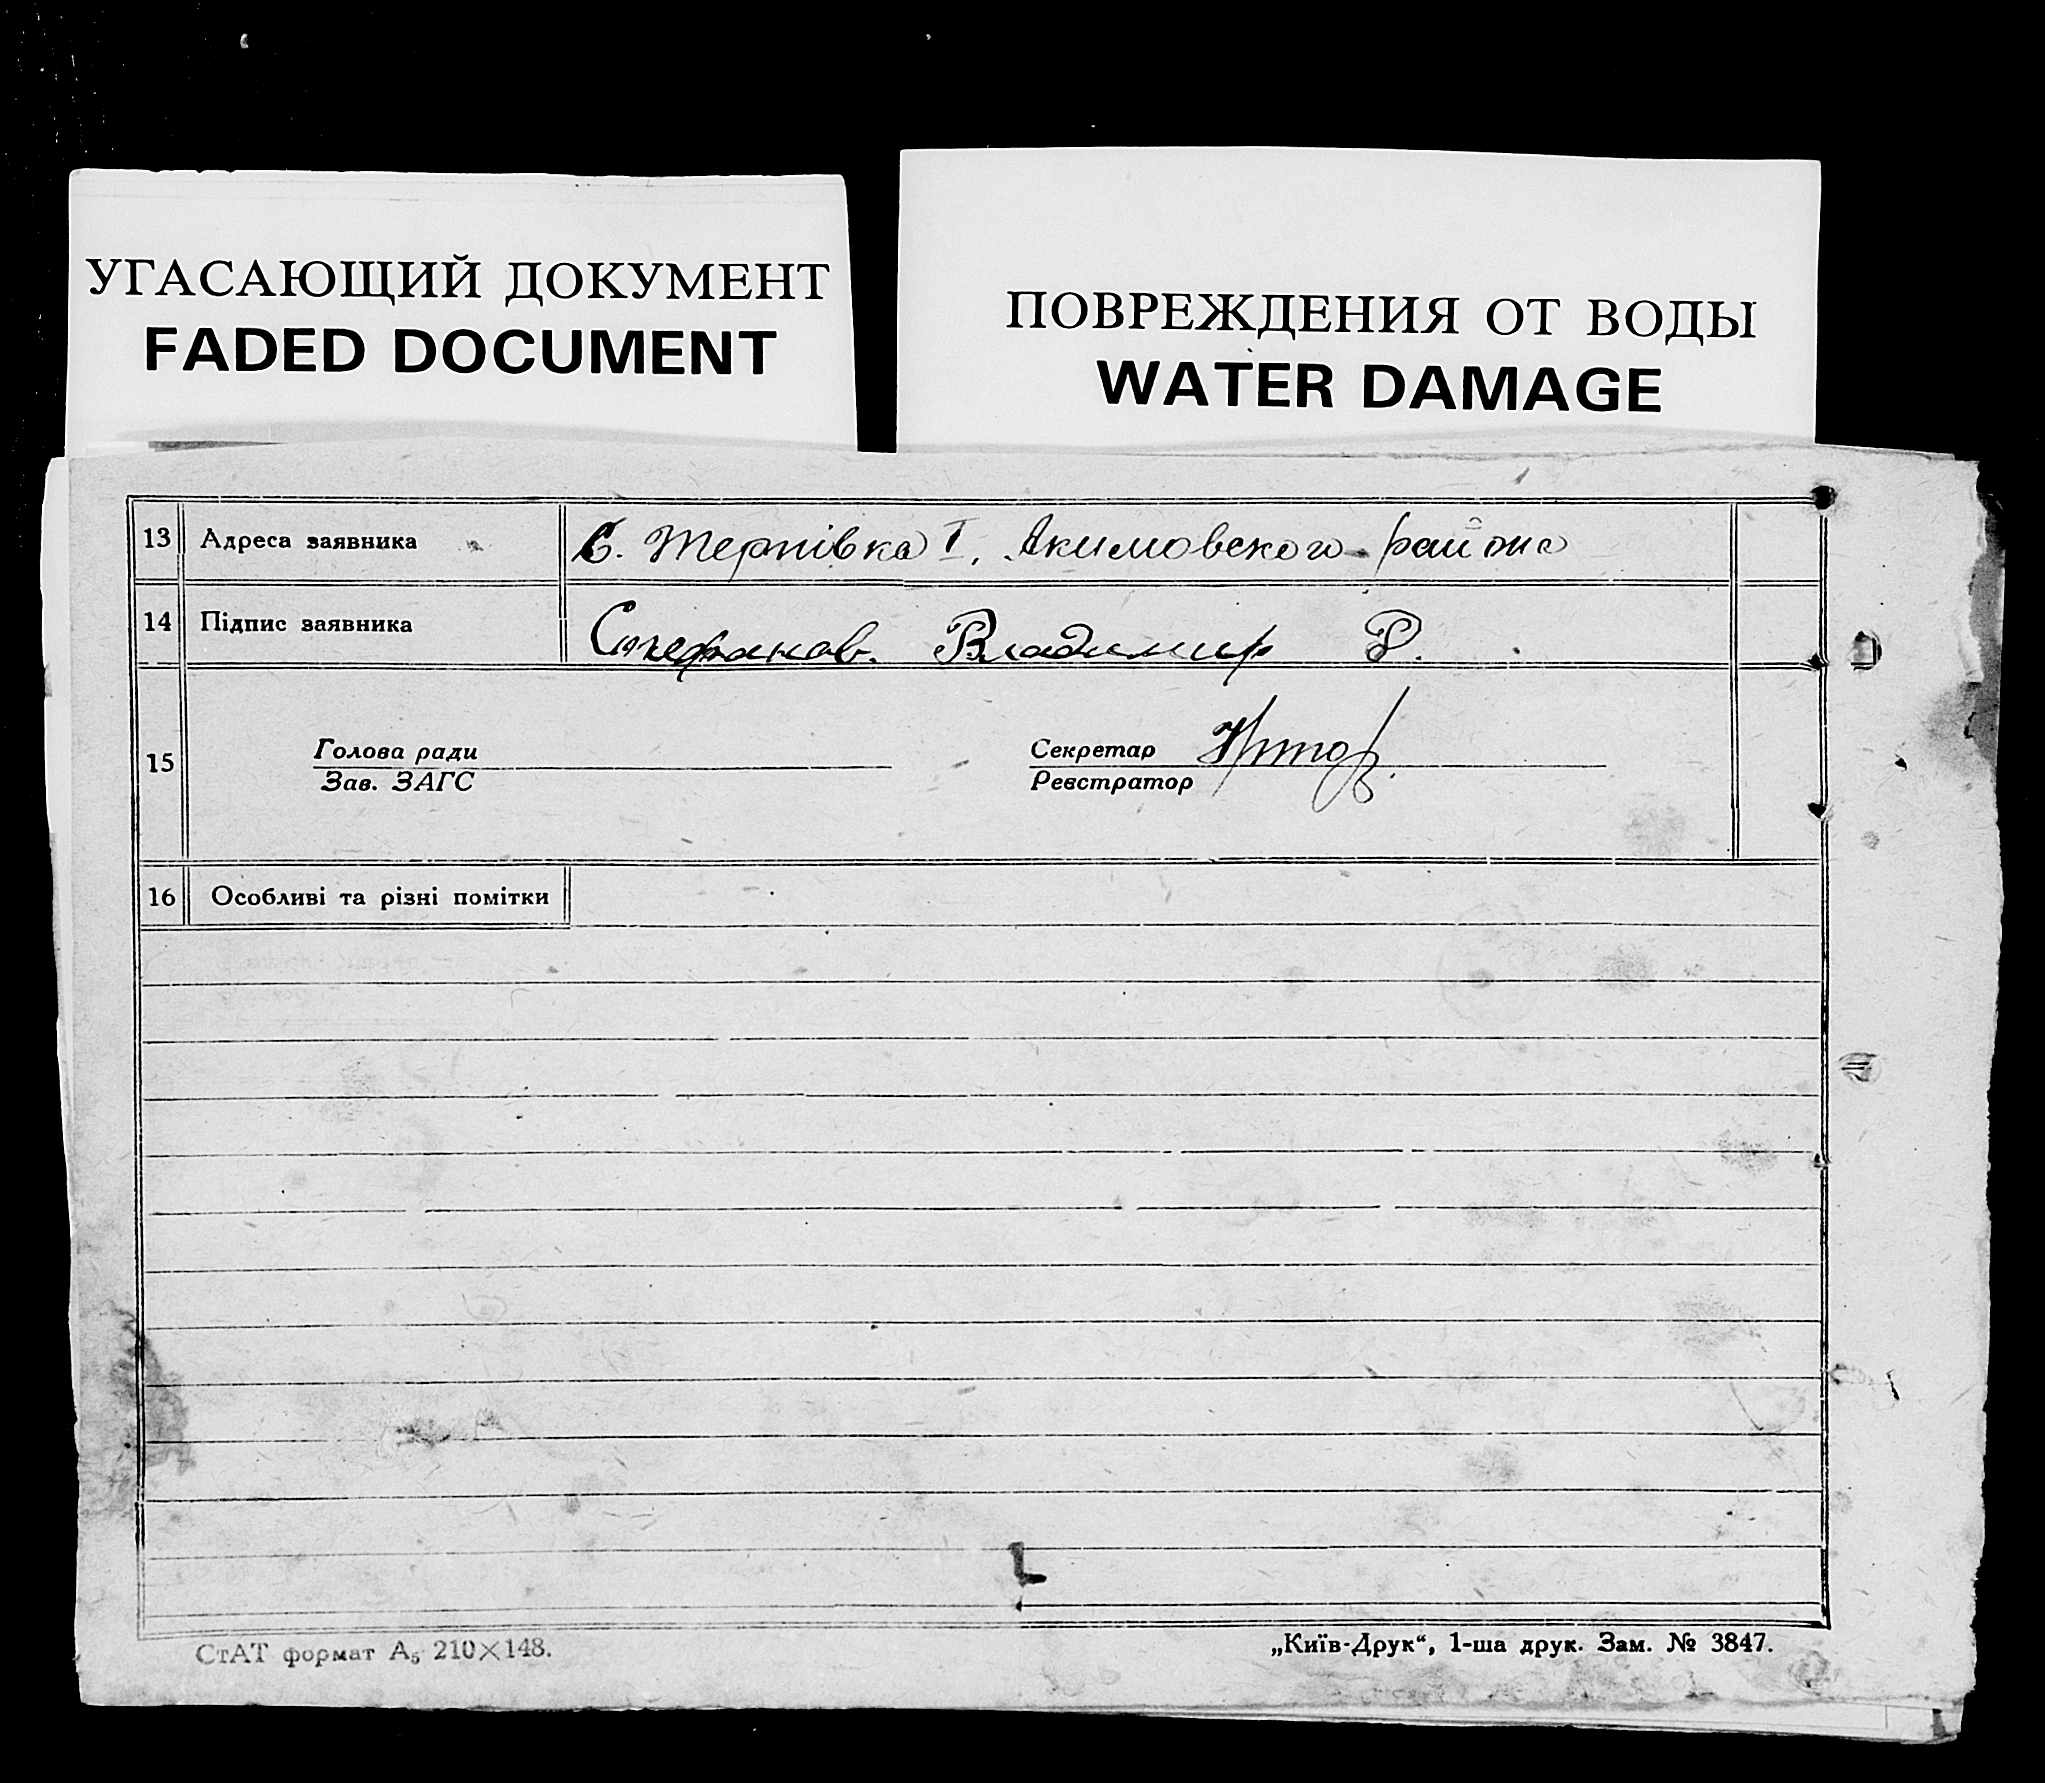 УГАСАЮЩИЙ ДОКУМЕНТ
FADED DOCUMENT
ПОВРЕЖДЕНИЯ ОТ ВОДЫ
WATER DAMAGE
13 Адреса заявника С. Терпівка I, Акимовского района
14 Підпис заявника Стефанов. Владимир
15 Голова ради Секретар
Зав. ЗАГС Реєстратор
16 Особливі та різні помітки
СтАТ формат А₅ 210×148.
„Київ-Друк“, 1-ша друк. Зам. № 3847.